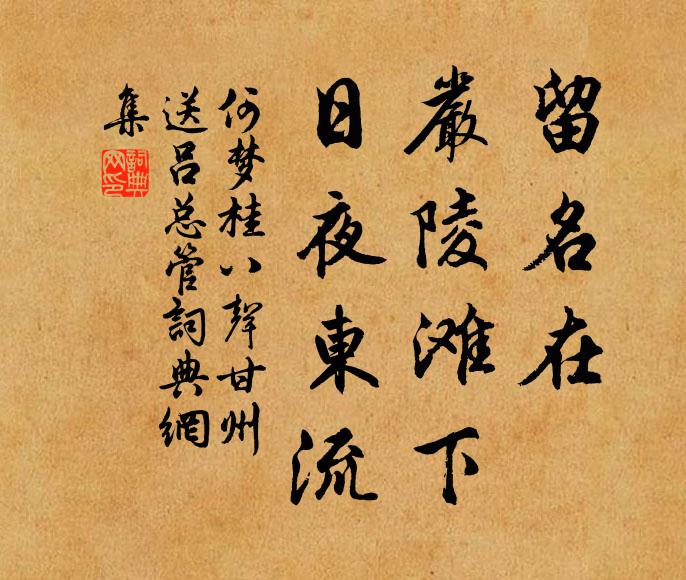 留名在
嚴陵滩下
日夜東流
何梦桂八聲甘州
送吕总管詞典網
集
詞典網印